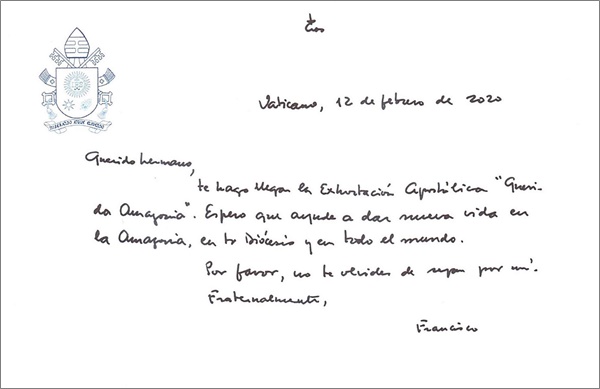 Vaticano, 12 de febrero de 2020
MISERANDO ATQUE ELIGENDO
Querido hermano,
te hago llegar la Exhortación Apostólica "Queri-
da Amazonia". Espero que ayude a dar nueva vida en
la Amazonia, en tu Diócesis y en todo el mundo.
Por favor, no te olvides de rezar por mí.
Fraternalmente,
Francisco